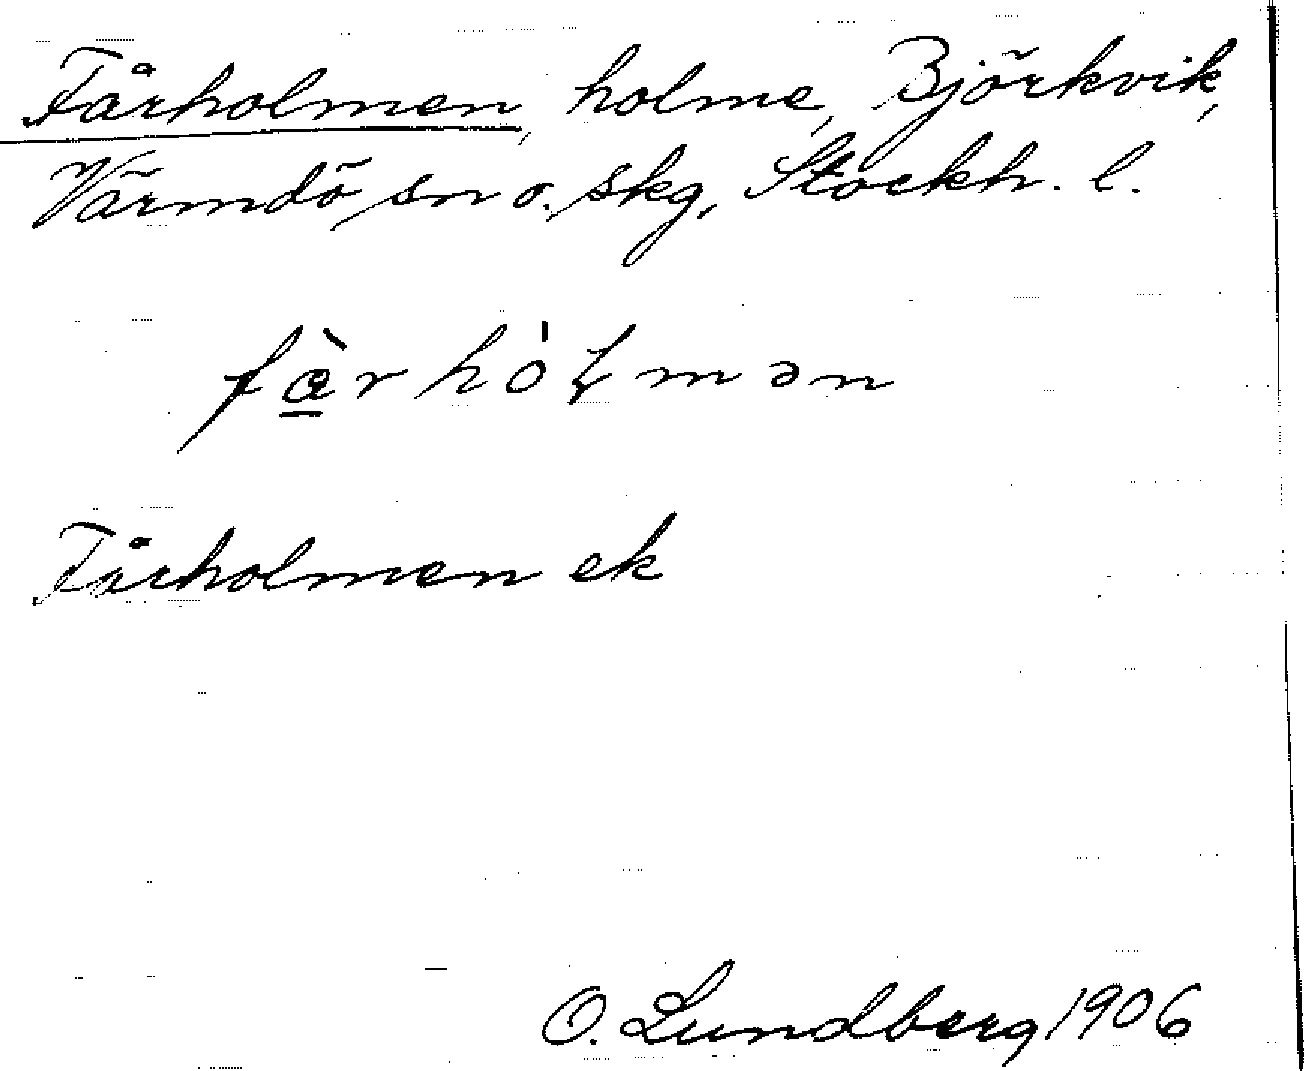 Fårholmen, holme, Björkvik,
Värmdö sn o. skg, Stockh. l.
Fårholmen ek
O. Lundberg 1906